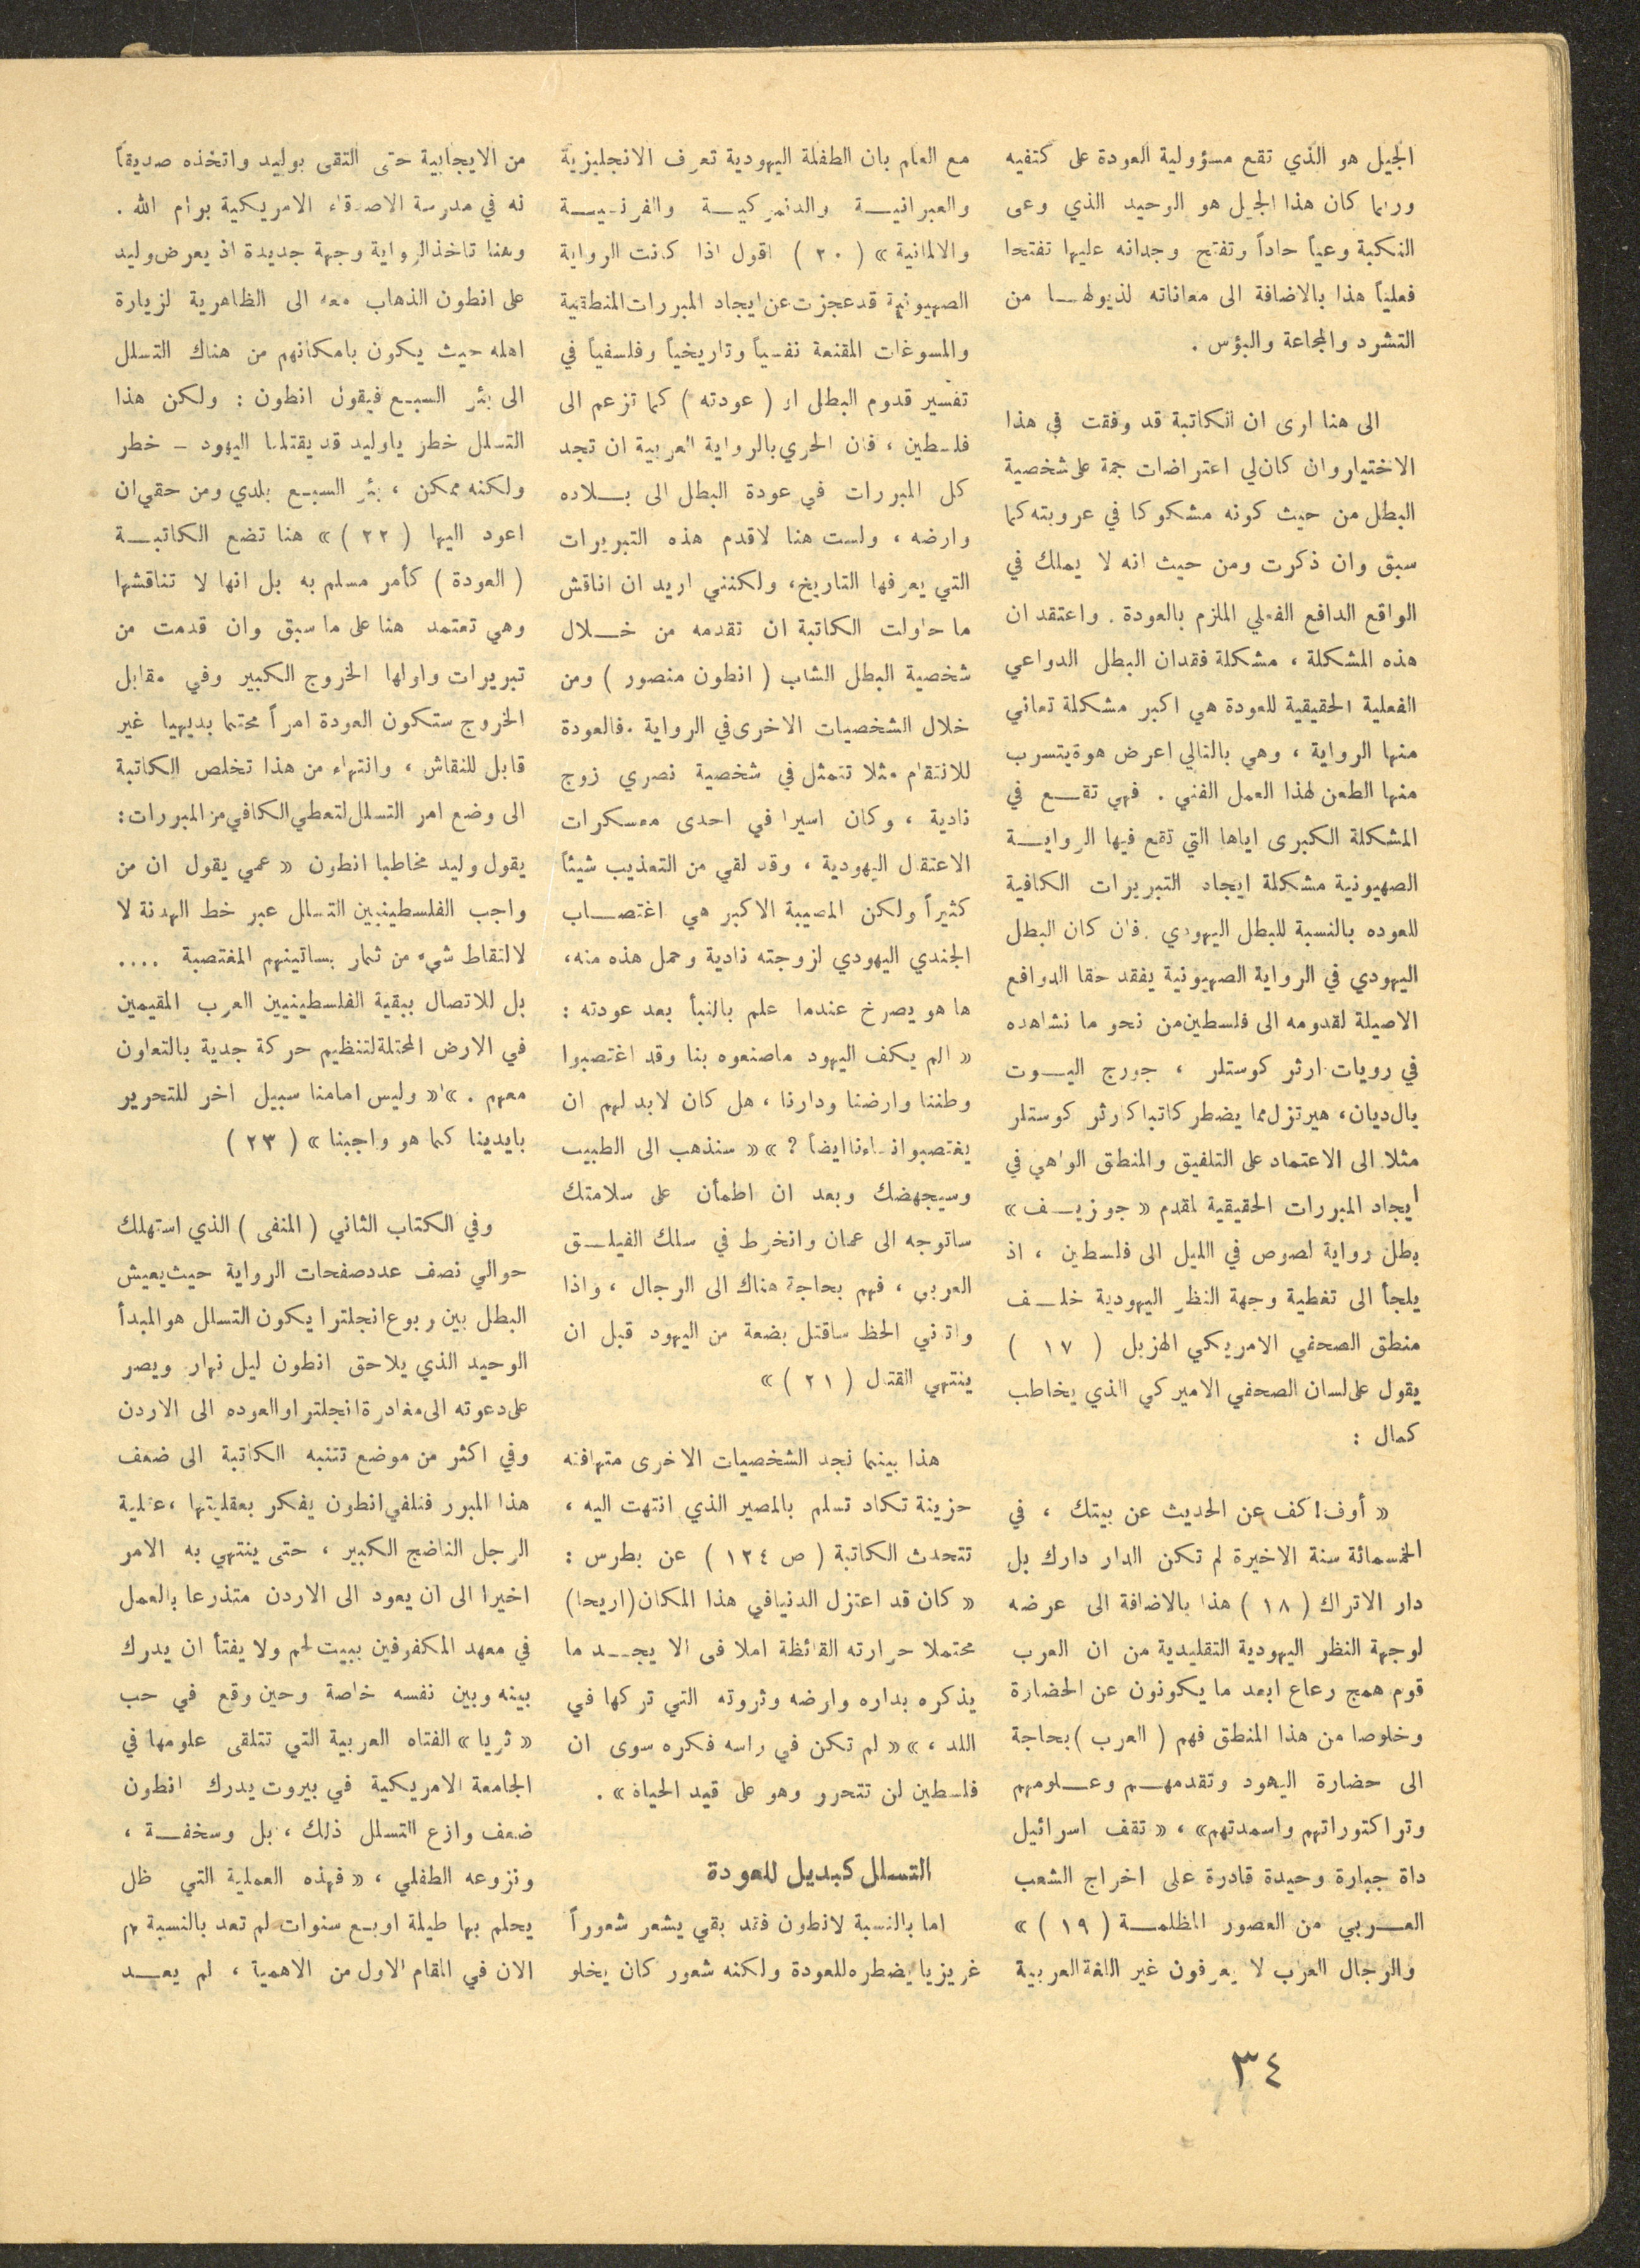 الجيل هو الذي تقع مسؤولية العودة على كتفيه
وربما كان هذا الجيل هو الوحيد الذي وعى
النكبة وعياً حاداً وتفتح وجدانه عليها تفتحا
فعلياً هذا بالاضافة الى معاناته لذيولهـا من
التشرد والمجاعة والبؤس .
الى هنا ارى ان الكاتبة قد وفقت في هذا
الاختيار وان كان لي اعتراضات جمة على شخصية
البطل من حيث كونه مشكوكا في عروبته كما
سبق وان ذكرت ومن حيث انه لا يملك في
الواقع الدافع الفعلي الملزم بالعودة . واعتقد ان
هذه المشكلة ، مشكلة فقدان البطل الدواعي
الفعلية الحقيقية للعودة هي اكبر مشكلة تعاني
منها الرواية ، وهي بالتالي اعرض هوة يتسرب
منها الطعن لهذا العمل الفني . فهي تقـع في
المشكلة الكبرى اياها التي تقع فيها الروايـة
الصهيونية مشكلة ايجاد التبريرات الكافية
للعوده بالنسبة للبطل اليهودي . فان كان البطل
اليهودي في الرواية الصهيونية يفقد حقا الدوافع
الاصيلة لقدومه الى فلسطين من نحو ما نشاهده
في رويات ارثر كوستلر ، جورج اليـوت
يال ديان ، هيرتزل مما يضطر كاتبا كارثر كوستلر
مثلا الى الاعتماد على التلفيق والمنطق الواهي في
ايجاد المبررات الحقيقية لمقدم « جوزيـف »
بطل رواية لصوص في الليل الى فلسطين ، اذ
يلجأ الى تغطية وجهة النظر اليهودية خلـف
منطق الصحفي الامريكي الهزيل ( ١٧ )
يقول على لسان الصحفي الاميركي الذي يخاطب
كمال :
« أوف ! كف عن الحديث عن بيتك ، في
الخمسمائة سنة الاخيرة لم تكن الدار دارك بل
دار الاتراك ( ١٨ ) هذا بالاضافة الى عرضه
لوجهة النظر اليهودية التقليدية من ان العرب
قوم همج رعاع ابعد ما يكونون عن الحضارة
وخلوصا من هذا المنطق فهم ( العرب ) بحاجة
الى حضارة اليهود وتقدمهـم وعـلومهم
وتراكتوراتهم واسمدتهم» ، « تقف اسرائيل
داة جبارة وحيدة قادرة على اخراج الشعب
العـربي من العصور المظلمـة ( ١٩ ) »
والرجال العرب لا يعرفون غير اللغة العربية
مع العلم بان الطفلة اليهودية تعرف الانجليزية
والعبرانيـة والدنمركيـة والفرنسيـة
والالمانية » ( ٢٠ ) اقول اذا كانت الرواية
الصهيونية قد عجزت عن ايجاد المبررات المنطقية
والمسوغات المقنعة نفسياً وتاريخياً وفلسفياً في
تفسير قدوم البطل او ( عودته ) كما تزعم الى
فلسطين ، فان الحري بالرواية العربية ان تجد
كل المبررات في عودة البطل الى بـلاده
وارضه ، ولست هنا لاقدم هذه التبريرات
التي يعرفها التاريخ ، ولكنني اريد ان اناقش
ما حاولت الكاتبة ان تقدمه من خـلال
شخصية البطل الشاب ( انطون منصور ) ومن
خلال الشخصيات الاخرى في الرواية . فالعودة
للانتقام مثلا تتمثل في شخصية نصري زوج
نادية ، وكان اسيرا في احدى معسكرات
الاعتقال اليهودية ، وقد لقي من التعذيب شيئاً
كثيراً ولكن المصيبة الاكبر هي اغتصـاب
الجندي اليهودي لزوجته نادية وحمل هذه منه ،
ها هو يصرخ عندما علم بالنبأ بعد عودته :
« الم يكف اليهود ماصنعوه بنا وقد اغتصبوا
وطننا وارضنا ودارنا ، هل كان لابد لهم ان
يغتصبوا نساءنا ايضاً ? » « سنذهب الى الطبيب
وسيجهضك وبعد ان اطمأن على سلامتك
ساتوجه الى عمان وانخرط في سلك الفيلـق
العربي ، فهم بحاجة هناك الى الرجال ، واذا
واتاني الحظ ساقتل بضعة من اليهود قبل ان
ينتهي القتال ( ٢١ ) »
هذا بينما نجد الشخصيات الاخرى متهافتة
حزينة تكاد تسلم بالمصير الذي انتهت اليه ،
تتحدث الكاتبة ( ص ١٢٤ ) عن بطرس :
« كان قد اعتزل الدنيا في هذا المكان (اريحا)
محتملا حرارته القائظة املا في الا يجـد ما
يذكره بداره وارضه وثروته التي تركها في
اللد ، » « لم تكن في راسه فكره سوى ان
فلسطين لن تتحرر وهو على قيد الحياة » .
التسلل كبديل للعودة
اما بالنسبة لانطون فقد بقي يشعر شعوراً
غريزيا يضطره للعودة ولكنه شعور كان يخلو
من الايجابية حتى التقى بوليد واتخذه صديقاً
له في مدرسة الاصدقاء الامريكية برام الله .
وهنا تاخذ الرواية وجهة جديدة اذ يعرض وليد
على انطون الذهاب معه الى الظاهرية لزيارة
اهله حيث يكون بامكانهم من هناك التسلل
الى بئر السبـع فيقول انطون : ولكن هذا
التسلل خطر ياوليد قد يقتلنا اليهود - خطر
ولكنه ممكن ، بئر السبـع بلدي ومن حقي ان
اعود اليها ( ٢٢ ) » هنا تضع الكاتبـة
( العودة ) كأمر مسلم به بل انها لا تناقشها
وهي تعتمد هنا على ما سبق وان قدمت من
تبريرات واولها الخروج الكبير وفي مقابل
الخروج ستكون العودة امراً محتما بديهيا غير
قابل للنقاش ، وانتهاء من هذا تخلص الكاتبة
الى وضع امر التسلل لتعطي الكافي من المبررات :
يقول وليد مخاطبا انطون « عمي يقول ان من
واجب الفلسطينيين التسلل عبر خط الهدنة لا
لالتقاط شيء من ثمار بساتينهم المغتصبة ....
بل للاتصال ببقية الفلسطينيين العرب المقيمين
في الارض المحتلة لتنظيم حركة جدية بالتعاون
معهم . » « وليس امامنا سبيل اخر للتحرير
بايدينا كما هو واجبنا » ( ٢٣ )
وفي الكتاب الثاني ( المنفى ) الذي استهلك
حوالي نصف عدد صفحات الرواية حيث يعيش
البطل بين ربوع انجلترا يكون التسلل هو المبدأ
الوحيد الذي يلاحق انطون ليل نهار ويصر
على دعوته الى مغادرة انجلترا والعوده الى الاردن
وفي اكثر من موضع تتنبه الكاتبة الى ضعف
هذا المبرر فنلفي انطون يفكر بعقليتها ، عقلية
الرجل الناضج الكبير ، حتى ينتهي به الامر
اخيرا الى ان يعود الى الاردن متذرعا بالعمل
في معهد المكفوفين ببيت لحم ولا يفتأ ان يدرك
بينه وبين نفسه خاصة وحين وقع في حب
« ثريا » الفتاه العربية التي تتلقى علومها في
الجامعة الامريكية في بيروت يدرك انطون
ضعف وازع التسلل ذلك ، بل وسخفـة ،
ونزوعه الطفلي ، « فهذه العملية التي ظل
يحلم بها طيلة اربـع سنوات لم تعد بالنسبة لهم
الان في المقام الاول من الاهمية ، لم يعـد
٣٤